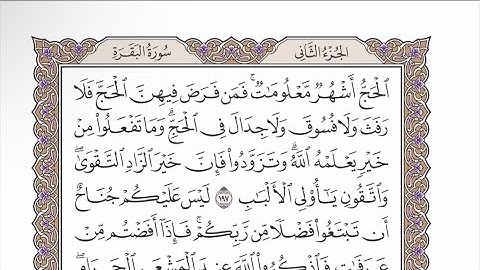 الجُزْءُ الثَّانِي
سُورَةُ البَقَرَةِ
ٱلْحَجُّ أَشْهُرٌ مَّعْلُومَٰتٌ ۚ فَمَن فَرَضَ فِيهِنَّ ٱلْحَجَّ فَلَا
رَفَثَ وَلَا فُسُوقَ وَلَا جِدَالَ فِي ٱلْحَجِّ ۗ وَمَا تَفْعَلُوا۟ مِنْ
خَيْرٍ يَعْلَمْهُ ٱللَّهُ ۗ وَتَزَوَّدُوا۟ فَإِنَّ خَيْرَ ٱلزَّادِ ٱلتَّقْوَىٰ ۚ
وَٱتَّقُونِ يَٰٓأُو۟لِي ٱلْأَلْبَٰبِ ١٩٧ لَيْسَ عَلَيْكُمْ جُنَاحٌ
أَن تَبْتَغُوا۟ فَضْلًا مِّن رَّبِّكُمْ ۚ فَإِذَآ أَفَضْتُم مِّنْ
عَرَفَٰتٍ فَٱذْكُرُوا۟ ٱللَّهَ عِندَ ٱلْمَشْعَرِ ٱلْحَرَامِ ۖ